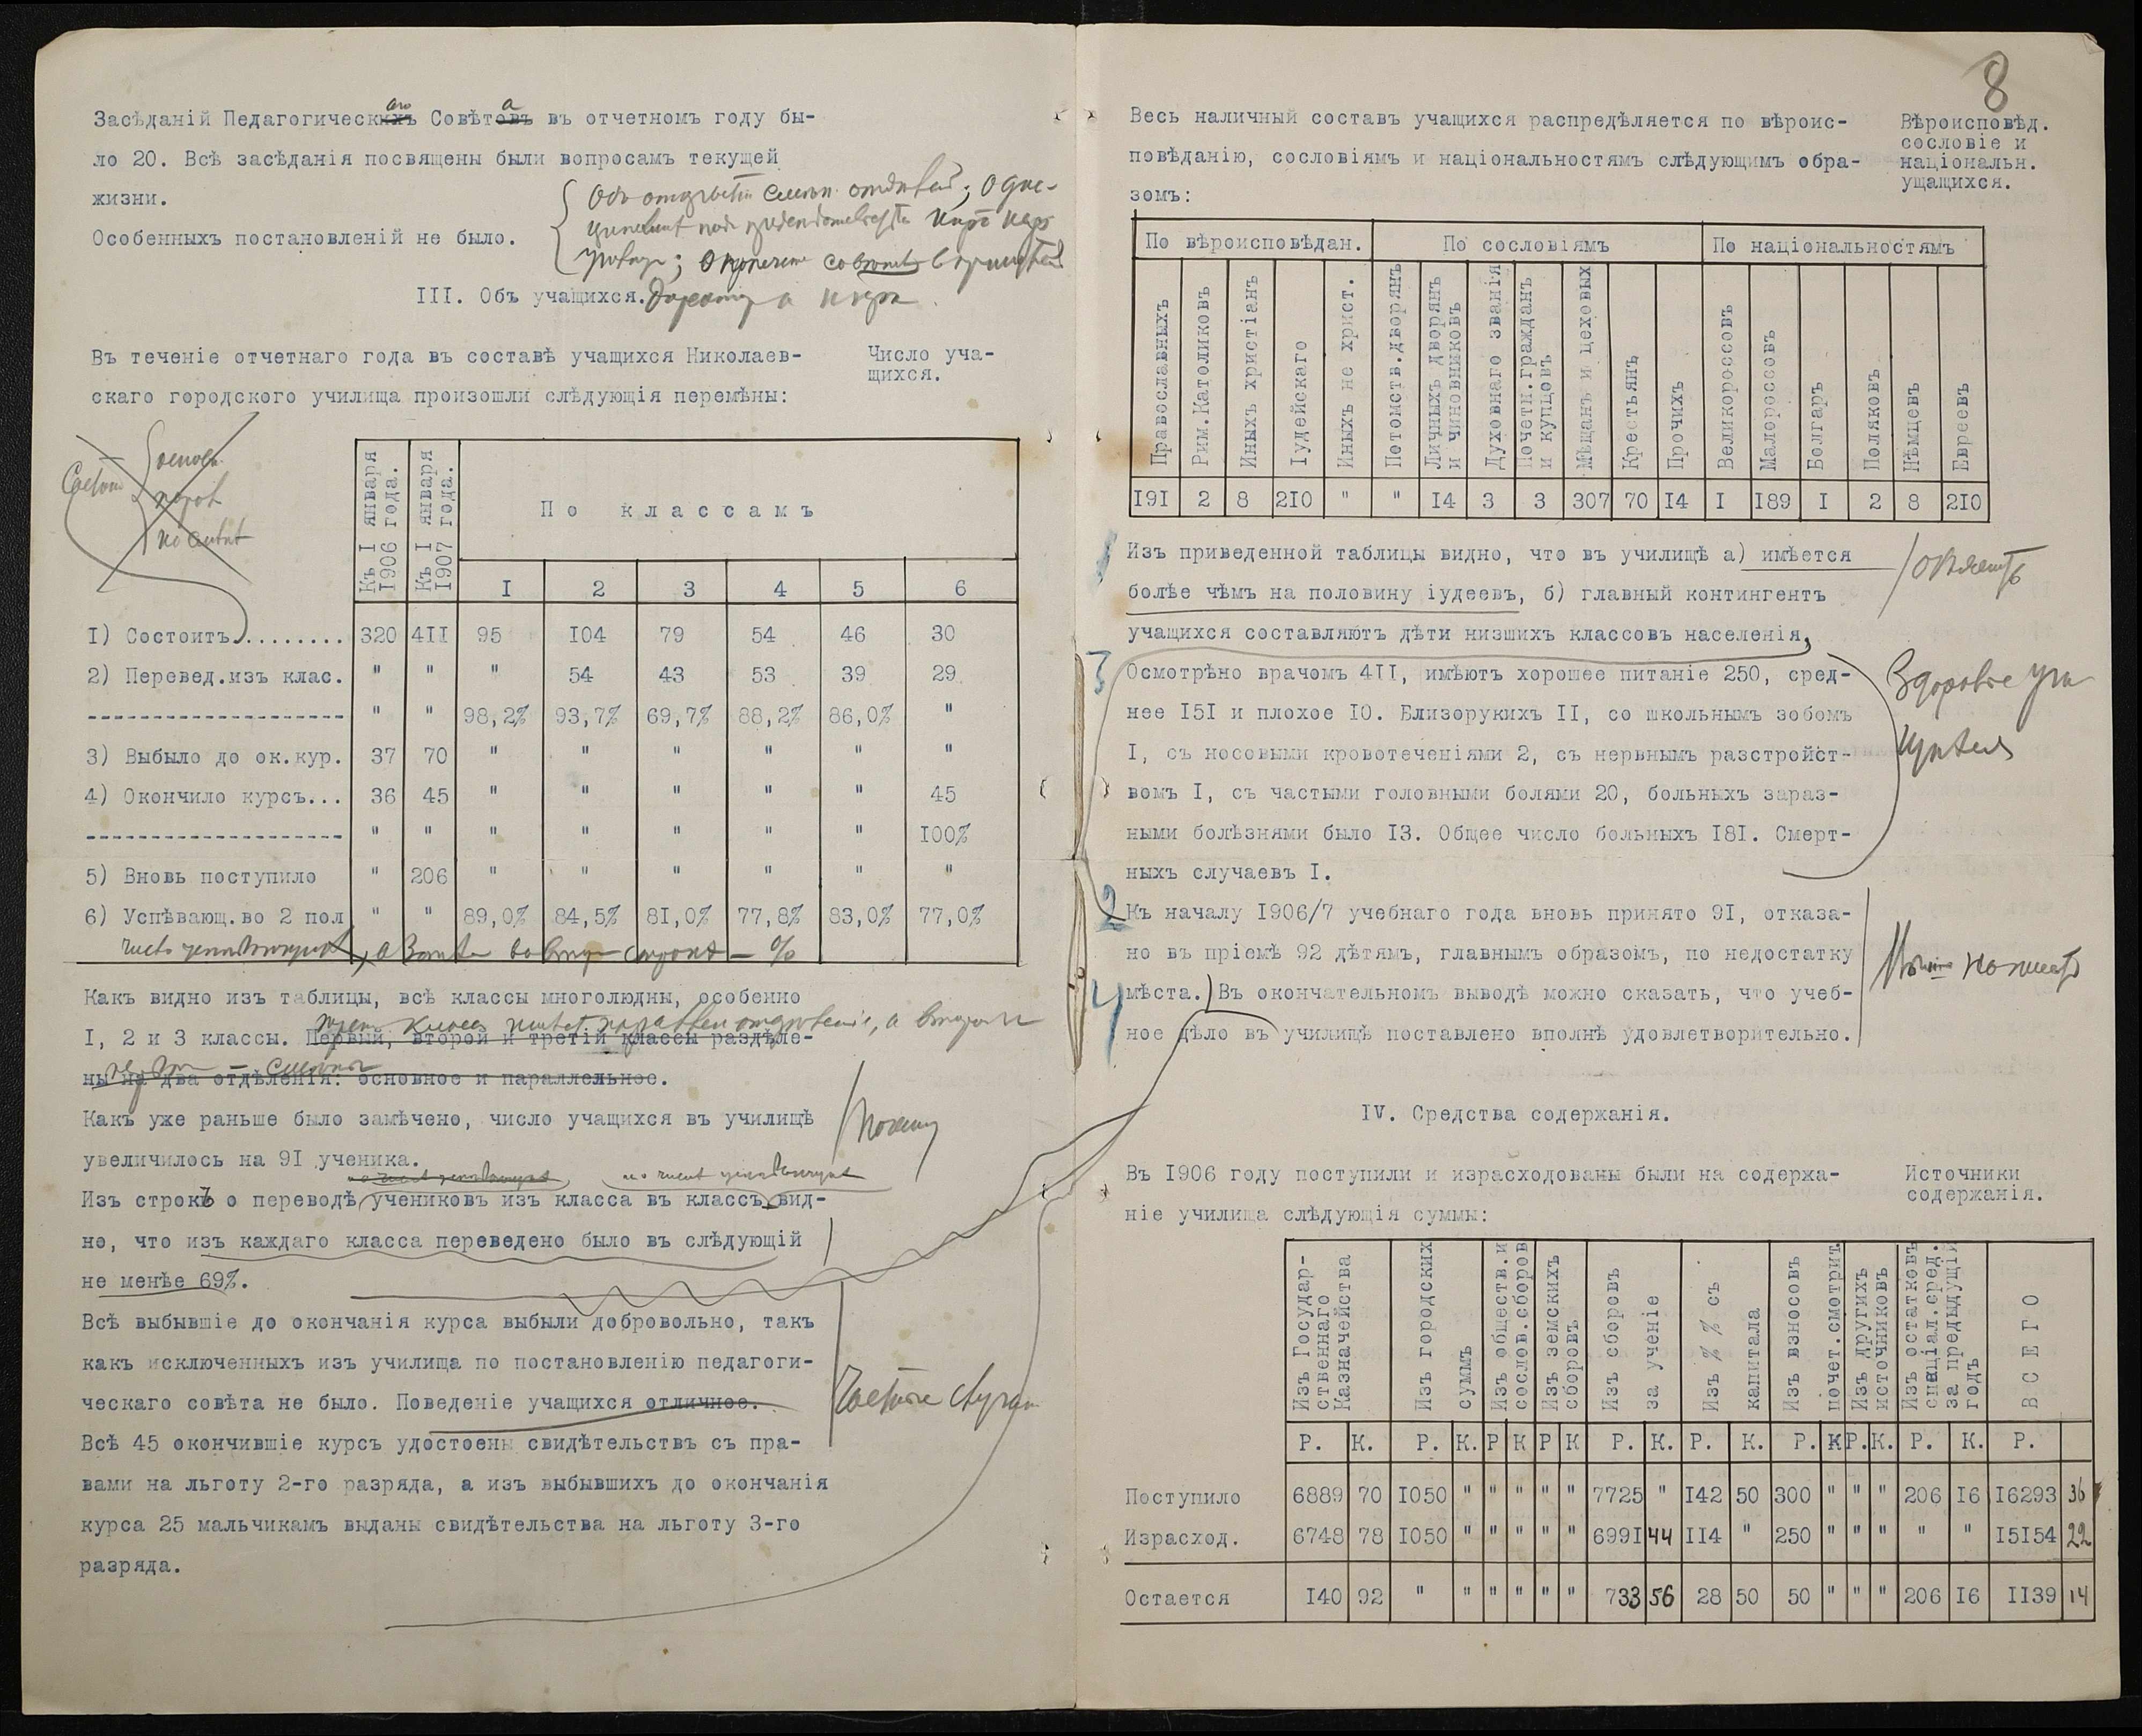 Засѣданій Педагогическихъ Совѣтовъ въ отчетномъ году бы-
ло 20. Всѣ засѣданія посвящены были вопросамъ текущей
жизни.
Особенныхъ постановленій не было.
III. Объ учащихся.
Въ теченіе отчетнаго года въ составѣ учащихся Николаев-
скаго городского училища произошли слѣдующія перемѣны:
Число уча-
щихся.
Къ I января 1906 года. Къ I января 1907 года. По классамъ
I 2 3 4 5 6
I) Состоитъ......... 320 4II 95 I04 79 54 46 30
2) Перевед.изъ клас. " " " 54 43 53 39 29
-------------------- " " 98,2% 93,7% 69,7% 88,2% 86,0% "
3) Выбыло до ок.кур. 37 70 " " " " " "
4) Окончило курсъ... 36 45 " " " " " 45
-------------------- " " " " " " " I00%
5) Вновь поступило " 206 " " " " " "
6) Успѣвающ.во 2 пол " " 89,0% 84,5% 81,0% 77,8% 83,0% 77,0%
Какъ видно изъ таблицы, всѣ классы многолюдны, особенно
I, 2 и 3 классы. Первый, второй и третій классы раздѣле-
ны на два отдѣленія: основное и параллельное.
Какъ уже раньше было замѣчено, число учащихся въ училищѣ
увеличилось на 9I ученика.
Изъ строкъ о переводѣ учениковъ изъ класса въ классъ вид-
но, что изъ каждаго класса переведено было въ слѣдующій
не менѣе 69%.
Всѣ выбывшіе до окончанія курса выбыли добровольно, такъ
какъ исключенныхъ изъ училища по постановленію педагоги-
ческаго совѣта не было. Поведеніе учащихся отличное.
Всѣ 45 окончившіе курсъ удостоены свидѣтельствъ съ пра-
вами на льготу 2-го разряда, а изъ выбывшихъ до окончанія
курса 25 мальчикамъ выданы свидѣтельства на льготу 3-го
разряда.
8
Весь наличный составъ учащихся распредѣляется по вѣроис-
повѣданію, сословіямъ и національностямъ слѣдующимъ обра-
зомъ:
Вѣроисповѣд.
сословіе и
національн.
ущащихся.
По вѣроисповѣдан. По сословіямъ По національностямъ
Православныхъ Рим.Католиковъ Иныхъ христіанъ Іудейскаго Иныхъ не христ. Потомств.дворянъ Личныхъ дворянъ и чиновниковъ Духовнаго званія Почетн.гражданъ и купцовъ Мѣщанъ и цеховыхъ Крестьянъ Прочихъ Великороссовъ Малороссовъ Болгаръ Поляковъ Нѣмцевъ Евреевъ
I9I 2 8 2I0 " " I4 3 3 307 70 I4 I I89 I 2 8 2I0
1
Изъ приведенной таблицы видно, что въ училищѣ а) имѣется
болѣе чѣмъ на половину іудеевъ, б) главный контингентъ
учащихся составляютъ дѣти низшихъ классовъ населенія,
3
Осмотрѣно врачомъ 4II, имѣютъ хорошее питаніе 250, сред-
нее I5I и плохое I0. Близорукихъ II, со школьнымъ зобомъ
I, съ носовыми кровотеченіями 2, съ нервнымъ разстройст-
вомъ I, съ частыми головными болями 20, больныхъ зараз-
ными болѣзнями было I3. Общее число больныхъ I8I. Смерт-
ныхъ случаевъ I.
2
Къ началу I906/7 учебнаго года вновь принято 9I, отказа-
но въ пріемѣ 92 дѣтямъ, главнымъ образомъ, по недостатку
мѣста. Въ окончательномъ выводѣ можно сказать, что учеб-
4
ное дѣло въ училищѣ поставлено вполнѣ удовлетворительно.
IV. Средства содержанія.
Въ I906 году поступили и израсходованы были на содержа-
ніе училища слѣдующія суммы:
Источники
содержанія.
Изъ Государ-ственнаго Казначейства Изъ городскихъ суммъ Изъ обществ.и сослов.сборов Изъ земскихъ сборовъ Изъ сборовъ за ученіе Изъ % % съ капитала Изъ взносовъ почет.смотрит. Изъ другихъ источниковъ Изъ остатковъ спеціал.сред. за предыдущій годъ ВСЕГО
Р. К. Р. К. Р К Р К Р. К. Р. К. Р. К Р. К. Р. К. Р.
Поступило 6889 70 I050 " " " " " 7725 " I42 50 300 " " " 206 I6 I6293 36
Израсход. 6748 78 I050 " " " " " 699I 44 II4 " 250 " " " " " I5I54 22
Остается I40 92 " " " " " " 733 56 28 50 50 " " " 206 I6 II39 14